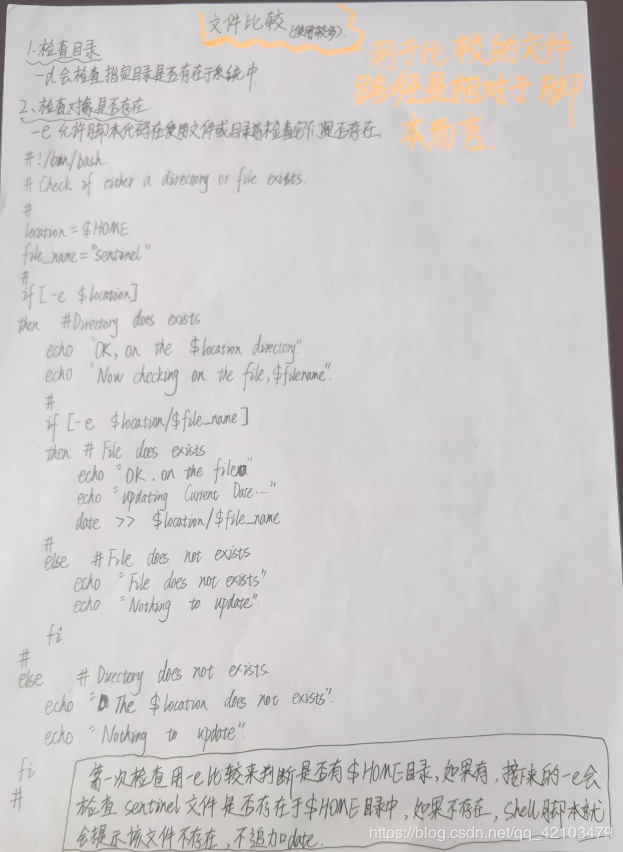 文件比较(使用较多).
用于比较的文件
路径是相对于脚
本而言.
1.检查目录
-d会检查指定目录是否存在于系统中
2.检查对象是否存在
-e 允许脚本代码在使用文件或目录前检查它们是否存在.
#!/bin/bash
# Check if either a directory or file exists.
#
location = $HOME
file_name="sentinel"
#
if [-e $location]
then #Directory does exists
echo "OK, on the $location directory"
echo "Now checking on the file, $filename".
#
if [-e $location/$file_name]
then # File does exists
echo "OK. on the file"
echo "updating Current Date..."
date >> $location/$file_name
#
else # File does not exists
echo "File does not exists"
echo "Nothing to update".
fi
#
else # Directory does not exists
echo "The $location does not exists".
echo "Nothing to update"
fi
#
第一次检查用-e比较来判断是否有$HOME目录,如果有,接下来的-e会
检查sentinel文件是否存在于$HOME目录中,如果不存在,shell脚本就
会提示该文件不存在,不追加date.
https://blog.csdn.net/qq_42103479